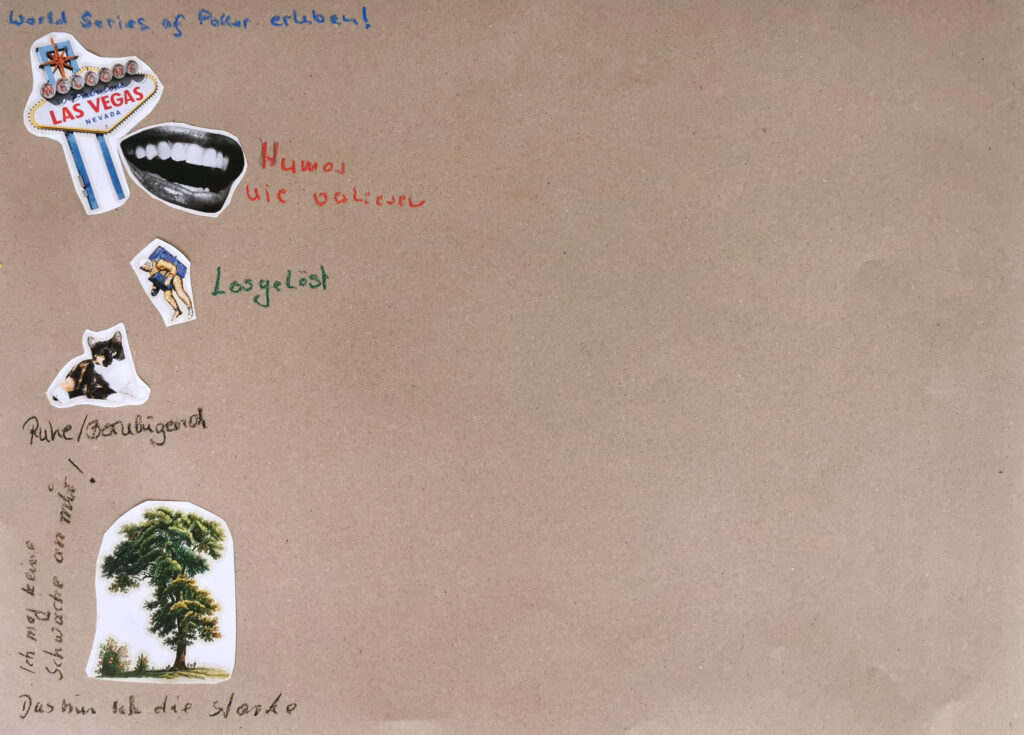 World Series of Poker erleben!
WELCOME
to Fabulous
LAS VEGAS
NEVADA
Humor
nie verlieren
Losgelöst
Ruhe/Beruhigend
Ich mag keine
Schwäche an mir!
Das bin ich die starke